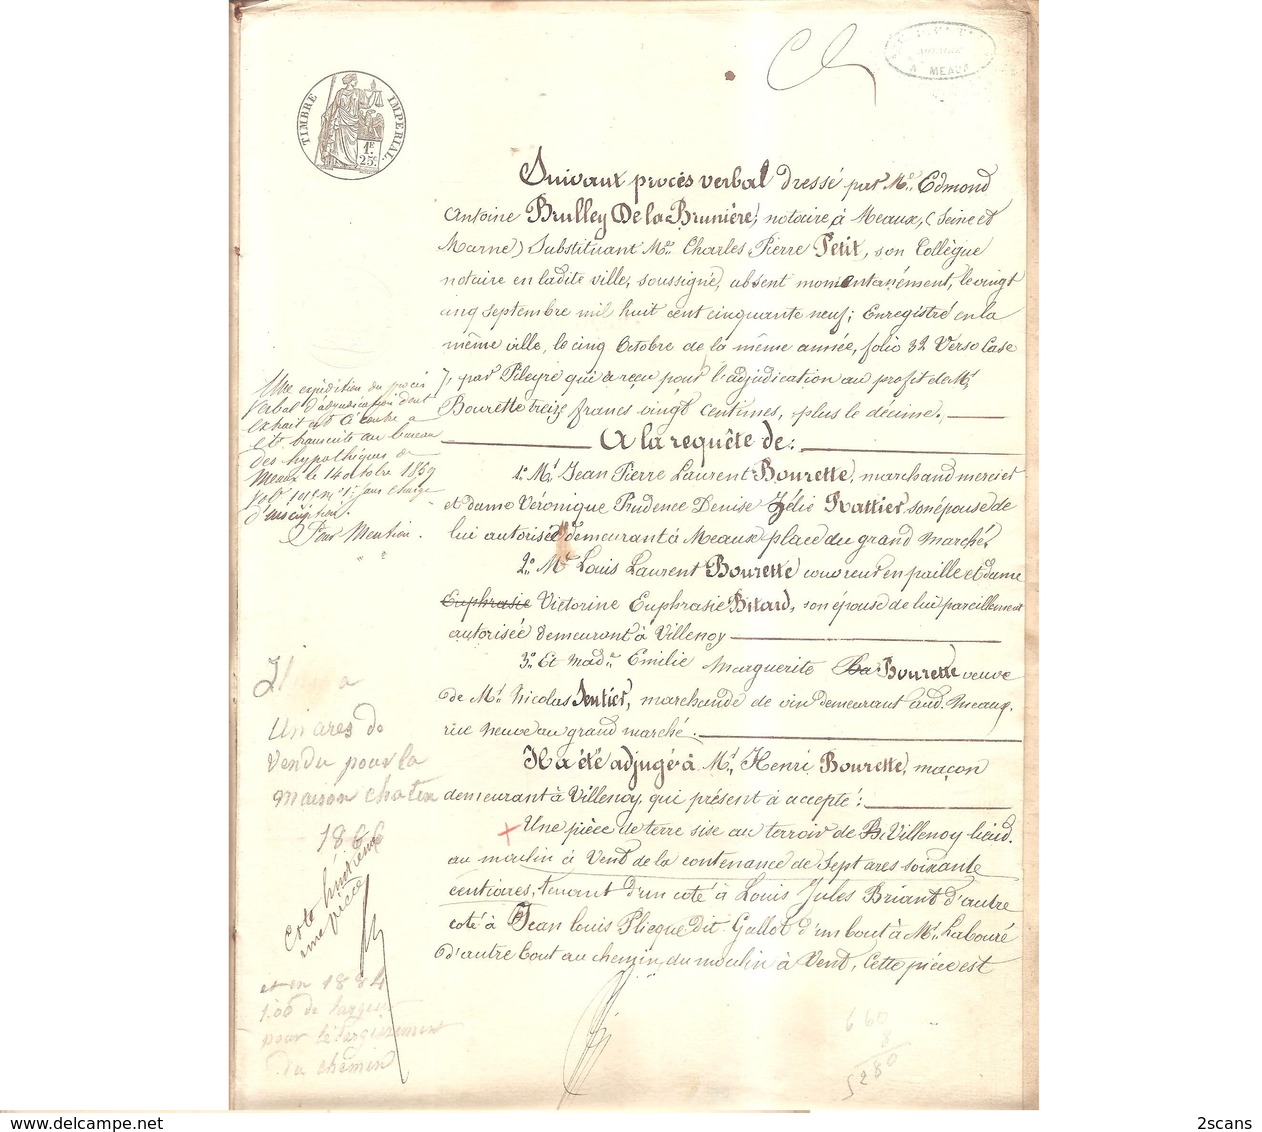 TIMBRE IMPERIAL.
1F.
25c.
NOTAIRE
A MEAUX
Suivant procès verbal dressé par Me. Edmond
Antoine Brulley De la Brunière, notaire à Meaux, (Seine et
Marne) Substituant Me. Charles Pierre Petit, son Collègue
notaire en ladite ville, soussigné, absent momentanément, le vingt
cinq septembre mil huit cent cinquante neuf; Enregistré en la
même ville, le cinq Octobre de la même année, folio 32 Verso Case
7, par Pileyre qui a reçu pour l'adjudication au profit de Mr.
Bourette treize francs vingt centimes, plus le décime.
A la requête de:
1o. Mr. Jean Pierre Laurent Bourette, marchand mercier
et dame Véronique Prudence Denise Zélie Rattier son épouse de
lui autorisée demeurant à Meaux place du grand marché,
2o. Mr. Louis Laurent Bourette couvreur en paille et dame
Euphrasie Victorine Euphrasie Bitard, son épouse de lui pareillement
autorisée demeurant à Villenoy
3o. Et made. Emilie Marguerite Ba Bourette veuve
de Mr. Nicolas Sentier, marchande de vin demeurant aud. Meaux,
rue Neuve au grand marché.
Il a été adjugé à Mr. Henri Bourette, maçon
demeurant à Villenoy, qui présent a accepté:
Une pièce de terre sise au terroir de B. Villenoy lieud.
au moulin à Vent de la contenance de Sept ares soixante
centiares, tenant d'un coté à Louis Jules Briant d'autre
coté à Jean Louis Plicque dit Gallot d'un bout à Mr. Labouré
d'autre bout au chemin du moulin à Vent, Cette pièce est
Une expédition du procès
verbal d'adjudication dont
extrait est ci contre a
été transcrite au bureau
des hypothèques de
Meaux le 14 octobre 1859
sans charge
d'inscription.
Pour Mention.
Un ares de
Vendu pour la
maison
1866
Cote huitième
une pièce
et en 1884
1.00 de largeur
pour l'élargissement
du chemin
660
8
5280
2scans